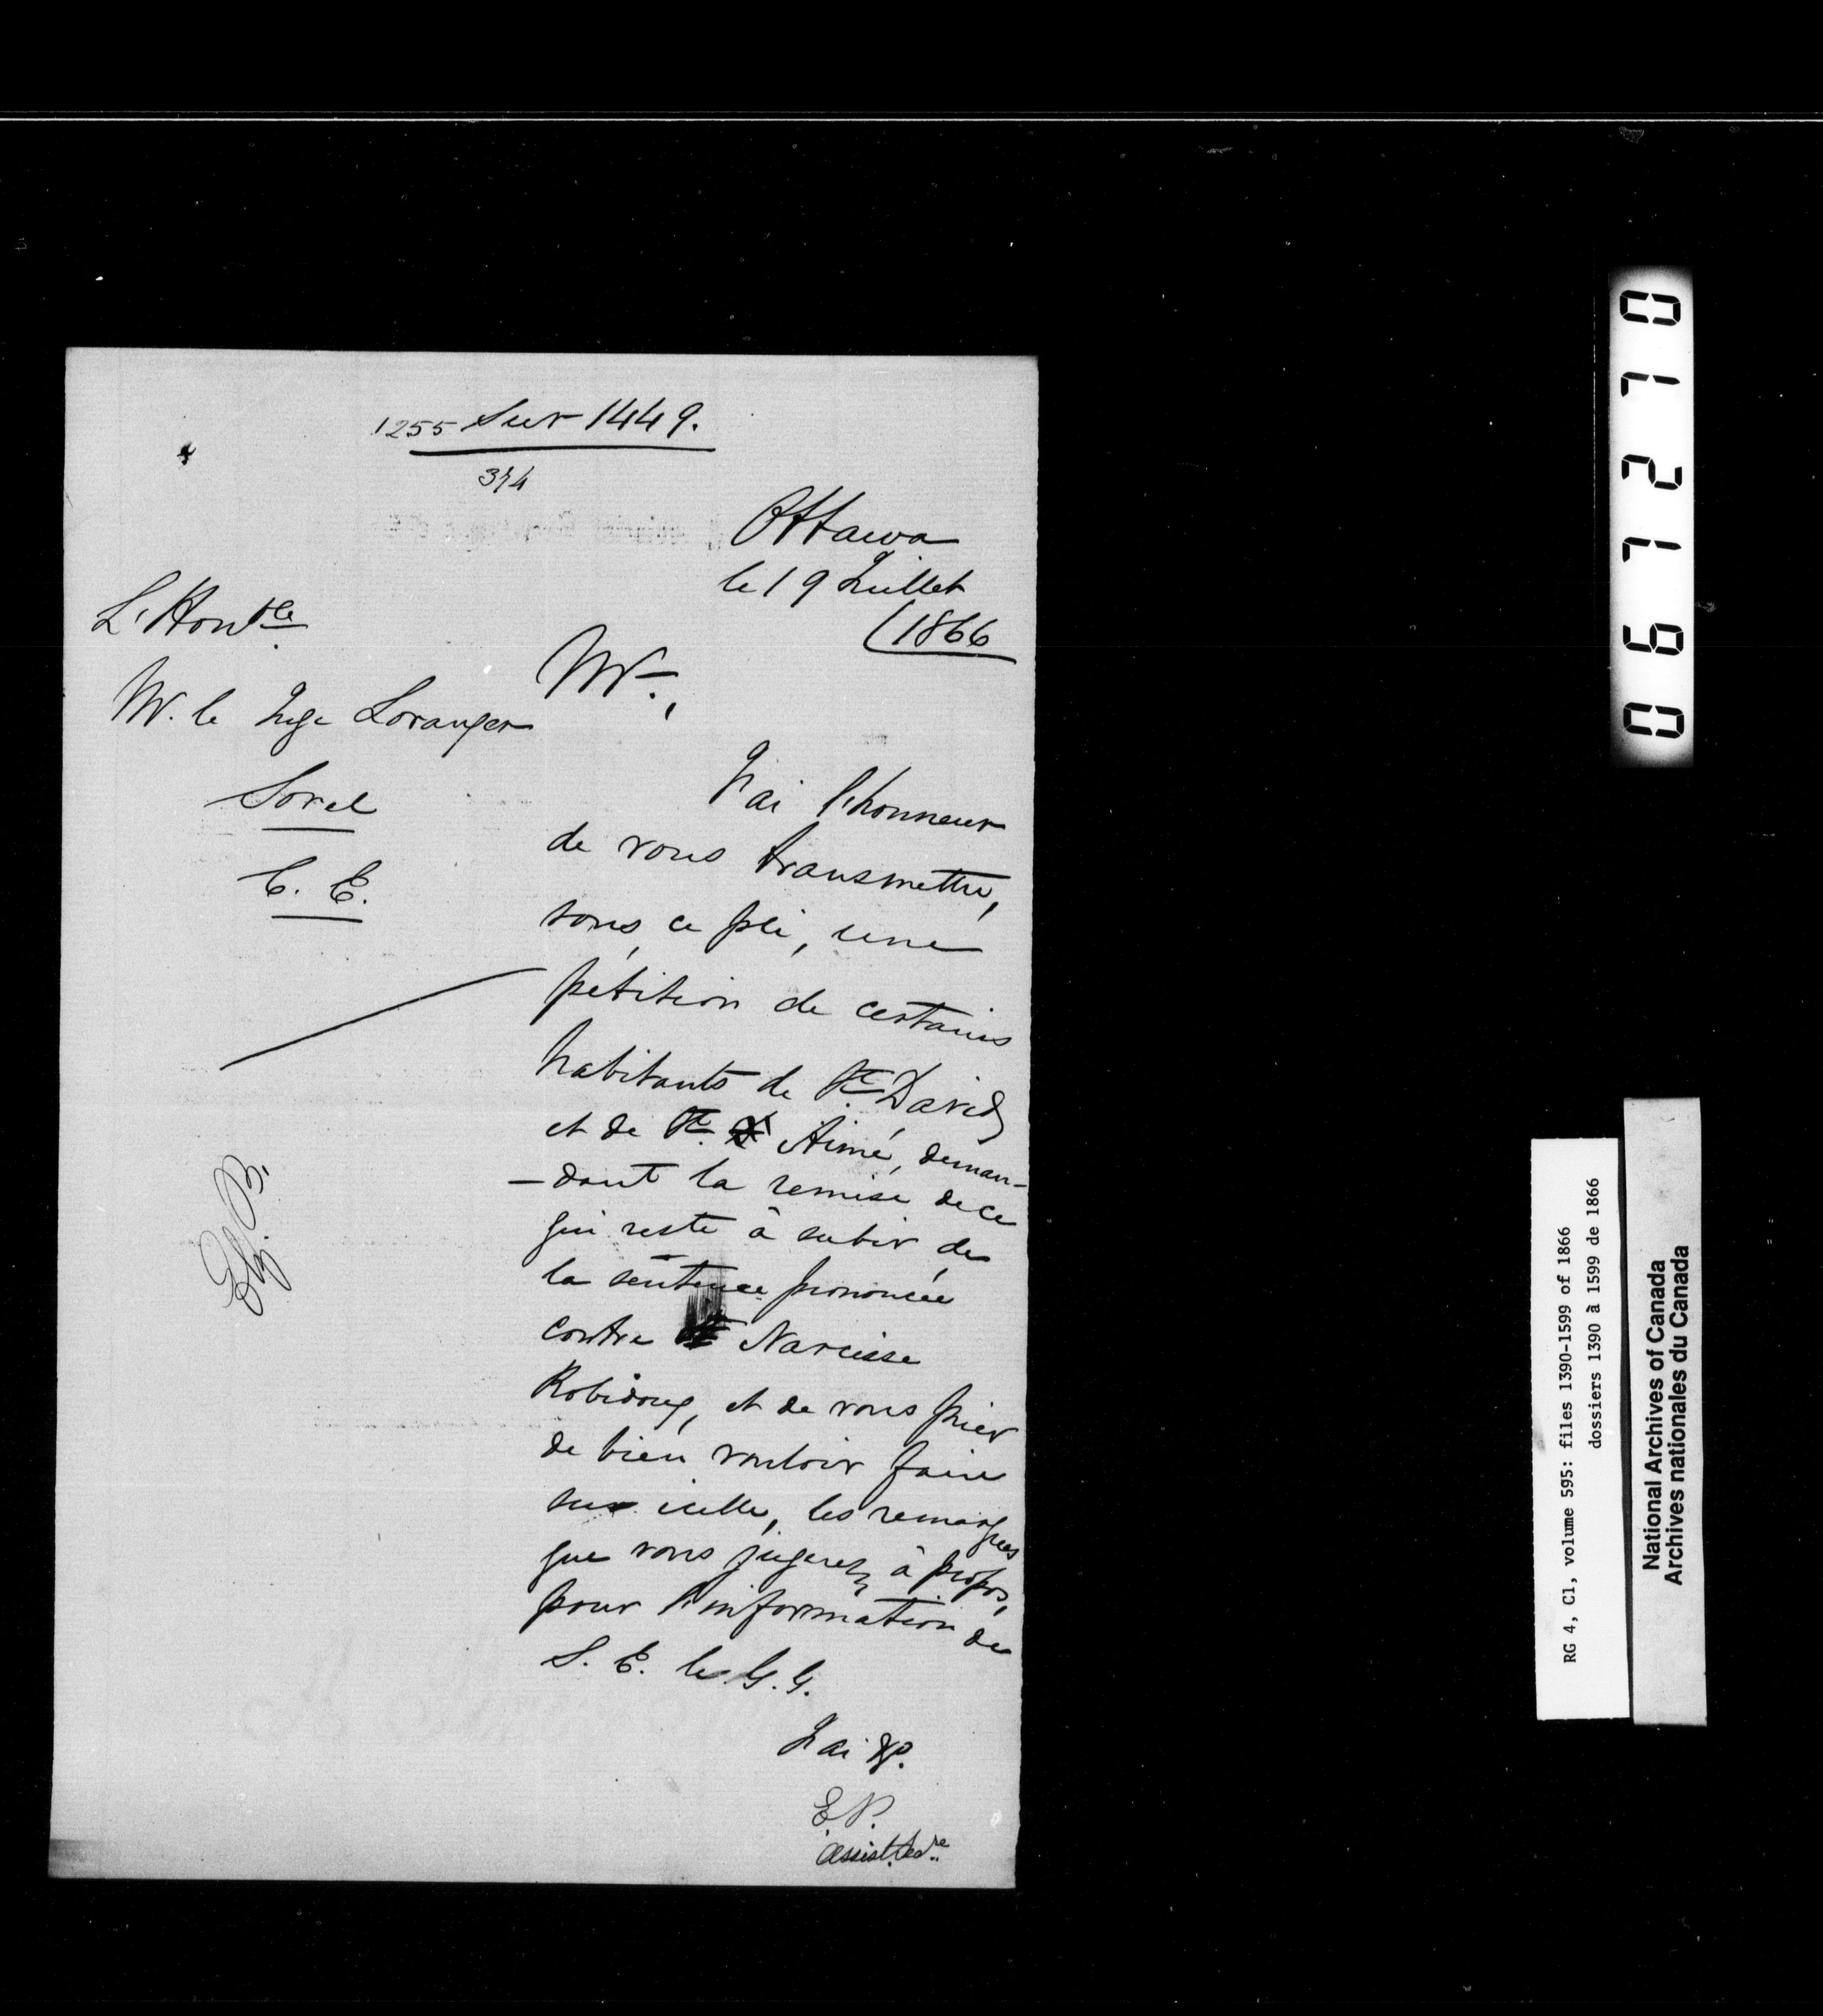 1255 Sur 1449.
374
Ottawa
le 19 Juillet
(1866
L'Honble
Mr. le Juge Loranger
Sorel
C. E.
Mr.,
J'ai l'honneur
de vous transmettre,
sous ce pli, une
pétition de certains
habitants de St. David
et de St. Aimé, deman-
-dant la remise de ce
qui reste à subir de
la sentence prononcée
contre Narcisse
Robidoux, et de vous prier
de bien vouloir faire
sur icelle, les remarques
que vous jugerez à propos,
pour l'information de
S. E. le G. G.
J'ai &c.
E. P.
Assist. Secre.
0 6 7 2 7 0
RG 4, C1, volume 595: files 1390-1599 of 1866
dossiers 1390 à 1599 de 1866
National Archives of Canada
Archives nationales du Canada